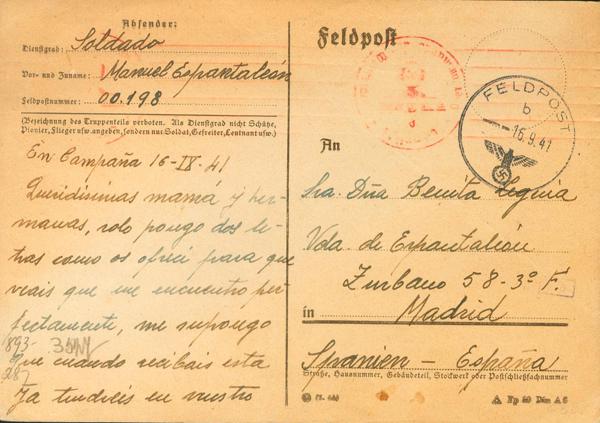 Absender:
Dienstgrad: Soldado
Vor- und Zuname: Manuel Espantaleón
Feldpostnummer: 00.198
(Bezeichnung des Truppenteils verboten. Als Dienstgrad nicht Schütze,
Pionier, Flieger usw. angeben, sondern nur Soldat, Gefreiter, Leutnant usw.)
En Campaña 16-IX-41
Queridisimas mamá y her-
manas, solo pongo dos le-
tras como os ofreci para que
veais que me encuentro per-
fectamente, me supongo
que cuando recibais esta
Ya tendreis en vuestro
893-
287
Feldpost
FELDPOST
b
16.9.41
An
Sra. Dña Benita
Vda. de Espantaleón
Zurbano 58-3º F.
in Madrid
Spanien - España
Straße, Hausnummer, Gebäudeteil, Stockwerk oder Postschließfachnummer
Din A 6